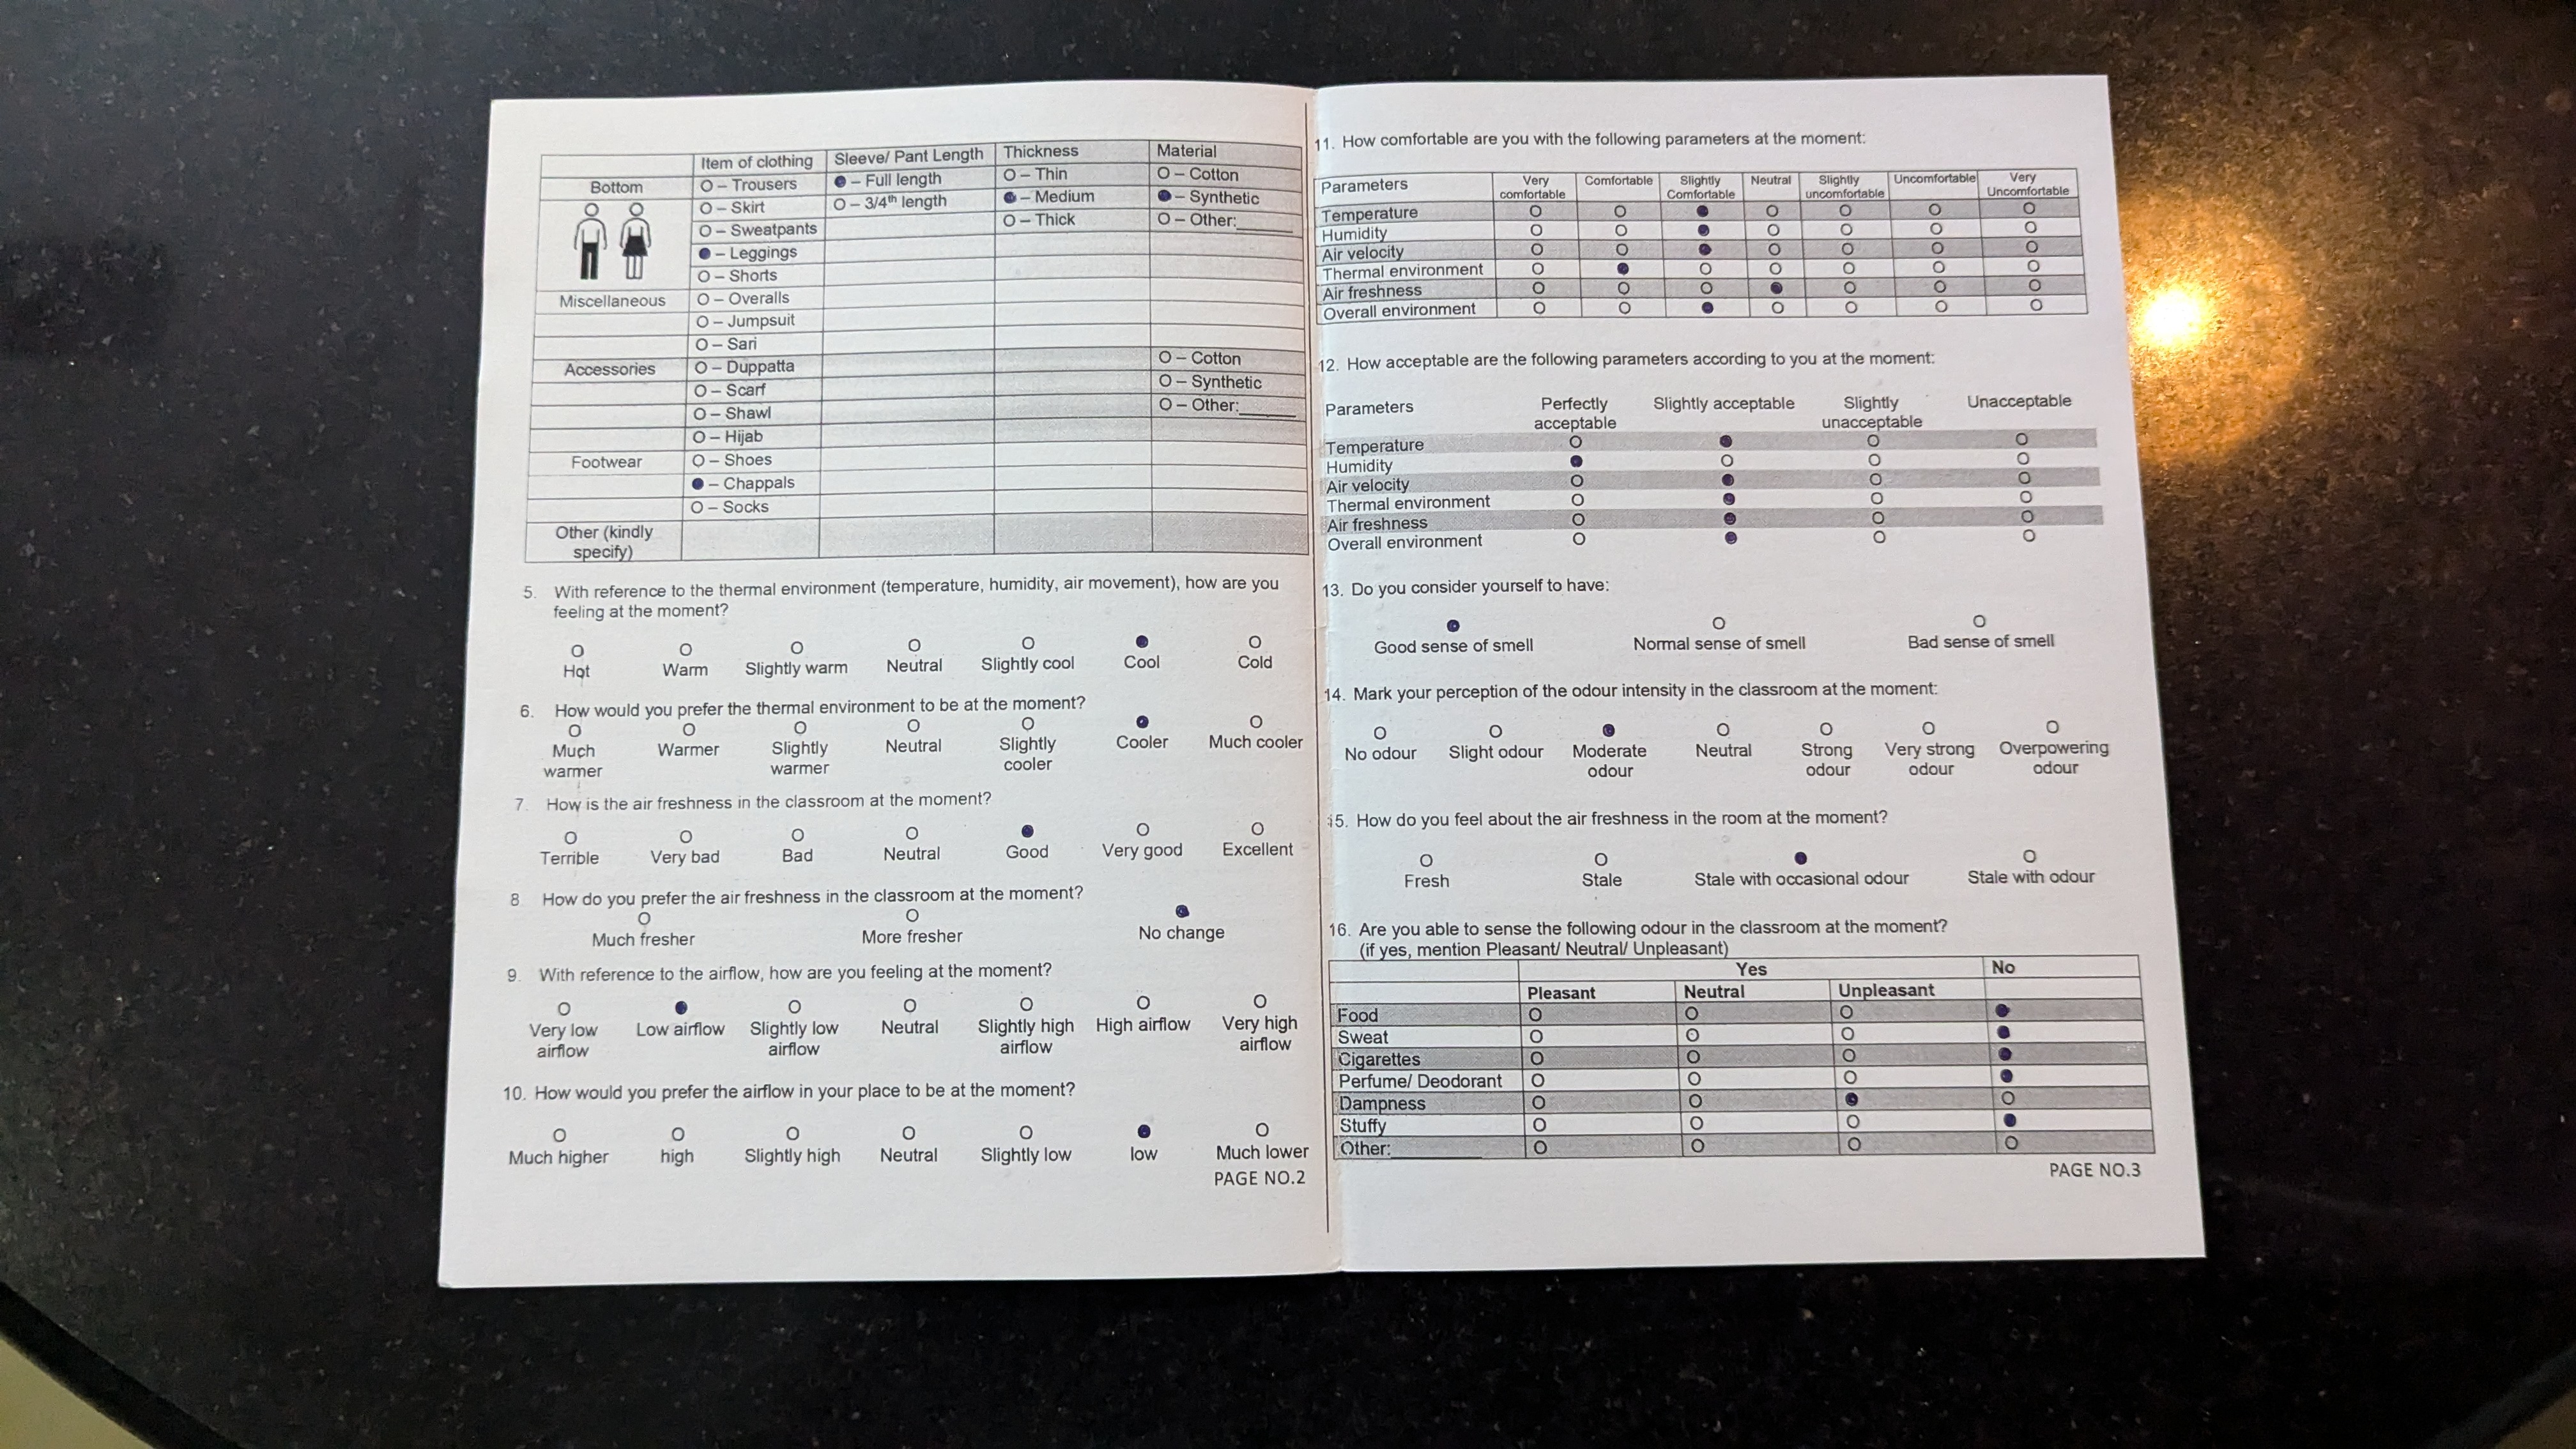 Item of clothing Sleeve/ Pant Length Thickness Material
Bottom O – Trousers ● – Full length O – Thin O – Cotton
O – Skirt O – 3/4th length ● – Medium ● – Synthetic
O – Sweatpants O – Thick O – Other:______
● – Leggings
O – Shorts
Miscellaneous O – Overalls
O – Jumpsuit
O – Sari
Accessories O – Duppatta O – Cotton
O – Scarf O – Synthetic
O – Shawl O – Other:______
O – Hijab
Footwear O – Shoes
● – Chappals
O – Socks
Other (kindly
specify)
5. With reference to the thermal environment (temperature, humidity, air movement), how are you
feeling at the moment?
O O O O O ● O
Hot Warm Slightly warm Neutral Slightly cool Cool Cold
6. How would you prefer the thermal environment to be at the moment?
O O O O O ● O
Much Warmer Slightly Neutral Slightly Cooler Much cooler
warmer warmer cooler
7. How is the air freshness in the classroom at the moment?
O O O O ● O O
Terrible Very bad Bad Neutral Good Very good Excellent
8 How do you prefer the air freshness in the classroom at the moment?
O O ●
Much fresher More fresher No change
9. With reference to the airflow, how are you feeling at the moment?
O ● O O O O O
Very low Low airflow Slightly low Neutral Slightly high High airflow Very high
airflow airflow airflow airflow
10. How would you prefer the airflow in your place to be at the moment?
O O O O O ● O
Much higher high Slightly high Neutral Slightly low low Much lower
PAGE NO.2
11. How comfortable are you with the following parameters at the moment:
Parameters Very Comfortable Slightly Neutral Slightly Uncomfortable Very
comfortable Comfortable uncomfortable Uncomfortable
Temperature O O ● O O O O
Humidity O O ● O O O O
Air velocity O O ● O O O O
Thermal environment O ● O O O O O
Air freshness O O O ● O O O
Overall environment O O ● O O O O
12. How acceptable are the following parameters according to you at the moment:
Parameters Perfectly Slightly acceptable Slightly Unacceptable
acceptable unacceptable
Temperature O ● O O
Humidity ● O O O
Air velocity O ● O O
Thermal environment O ● O O
Air freshness O ● O O
Overall environment O ● O O
13. Do you consider yourself to have:
● O O
Good sense of smell Normal sense of smell Bad sense of smell
14. Mark your perception of the odour intensity in the classroom at the moment:
O O ● O O O O
No odour Slight odour Moderate Neutral Strong Very strong Overpowering
odour odour odour odour
15. How do you feel about the air freshness in the room at the moment?
O O ● O
Fresh Stale Stale with occasional odour Stale with odour
16. Are you able to sense the following odour in the classroom at the moment?
(if yes, mention Pleasant/ Neutral/ Unpleasant)
Yes No
Pleasant Neutral Unpleasant
Food O O O ●
Sweat O O O ●
Cigarettes O O O ●
Perfume/ Deodorant O O O ●
Dampness O O ● O
Stuffy O O O ●
Other:__________ O O O O
PAGE NO.3